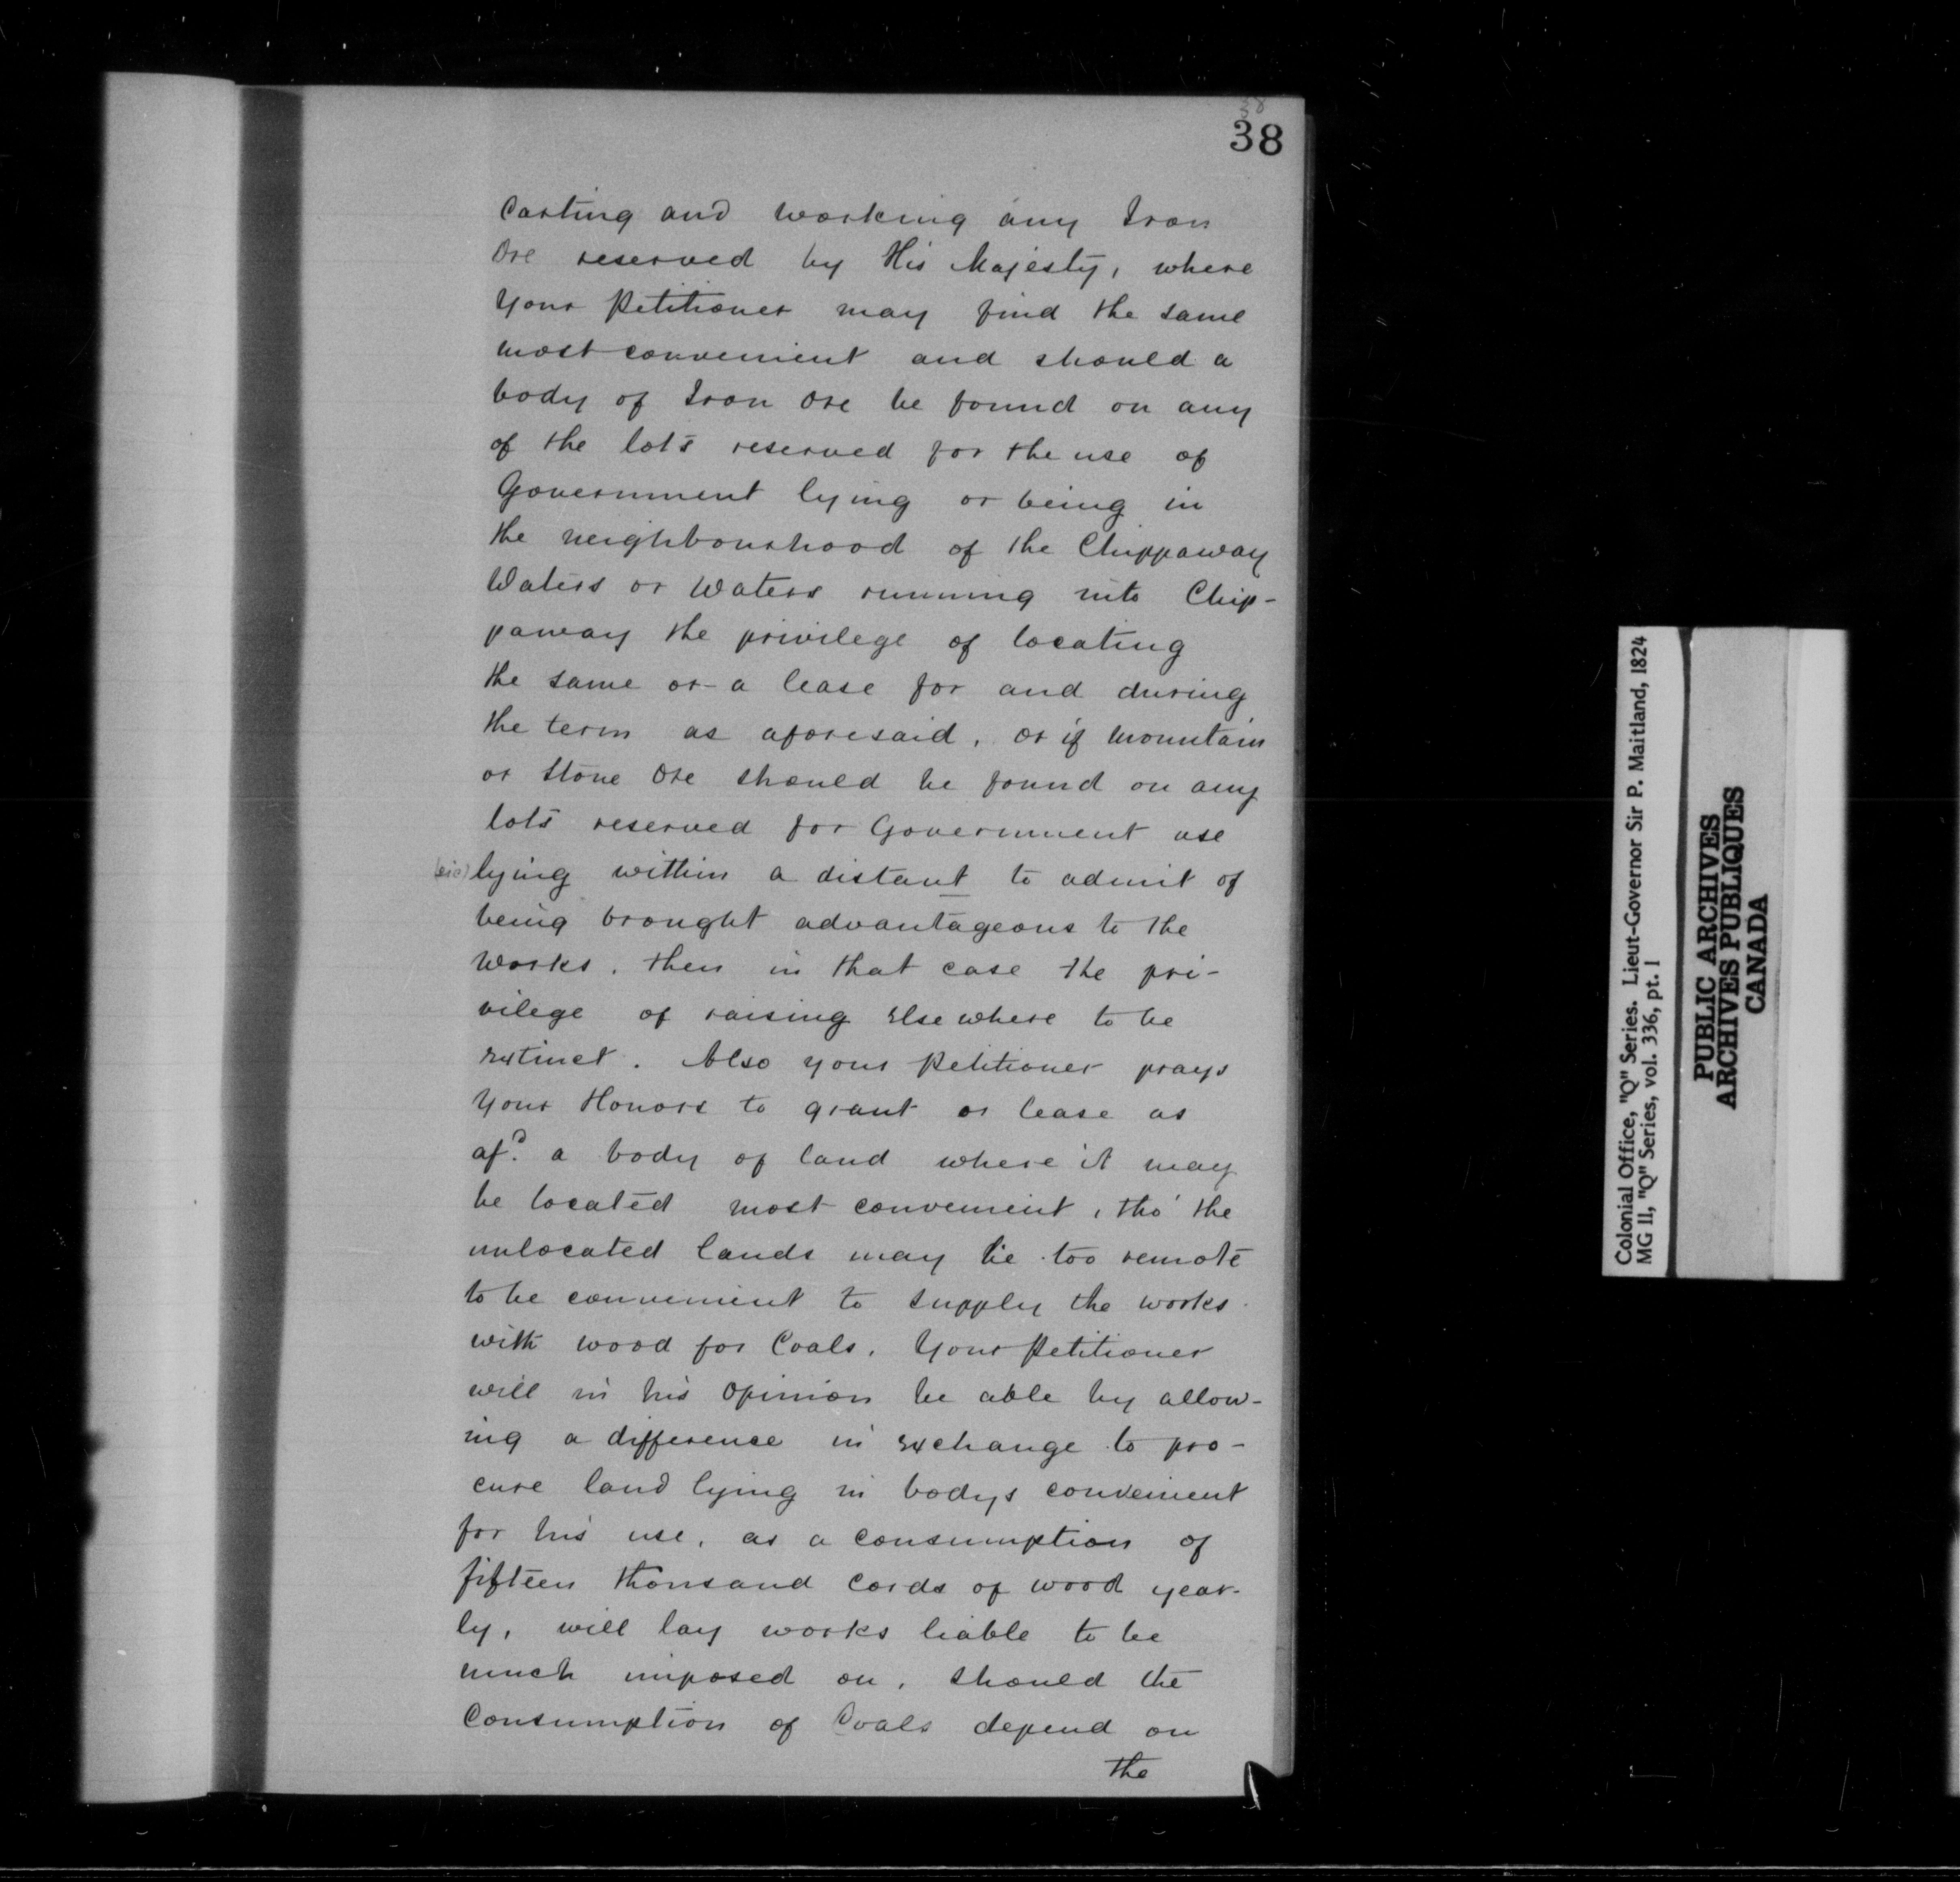 38
38
Casting and working any Iron
Ore reserved by His Majesty, where
Your Petitioner may find the same
most convenient and should a
body of Iron Ore be found on any
of the lots reserved for the use of
Government lying or being in
the neighbourhood of the Chippaway
Waters or Waters running into Chip-
paway the privilege of locating
the same or a lease for and during
the term as aforesaid, or if mountain
or Stone Ore should be found on any
lots reserved for Government use
(sic) lying within a distant to admit of
being brought advantageous to the
works, then in that case the pri-
vilege of raising elsewhere to be
extinct. Also your Petitioner prays
Your Honors to grant or lease as
afd. a body of land where it may
be located most convenient, tho' the
unlocated lands may lie too remote
to be convenient to supply the works
with wood for Coals. Your Petitioner
will in his Opinion be able by allow-
ing a difference in exchange to pro-
cure land lying in bodys convenient
for his use, as a consumption of
fifteen thousand Cords of wood year-
ly, will lay works liable to be
much imposed on, should the
Consumption of Coals depend on
the
Colonial Office, "Q" Series. Lieut-Governor Sir P. Maitland, 1824
MG 11, "Q" Series, vol. 336, pt. 1
PUBLIC ARCHIVES
ARCHIVES PUBLIQUES
CANADA